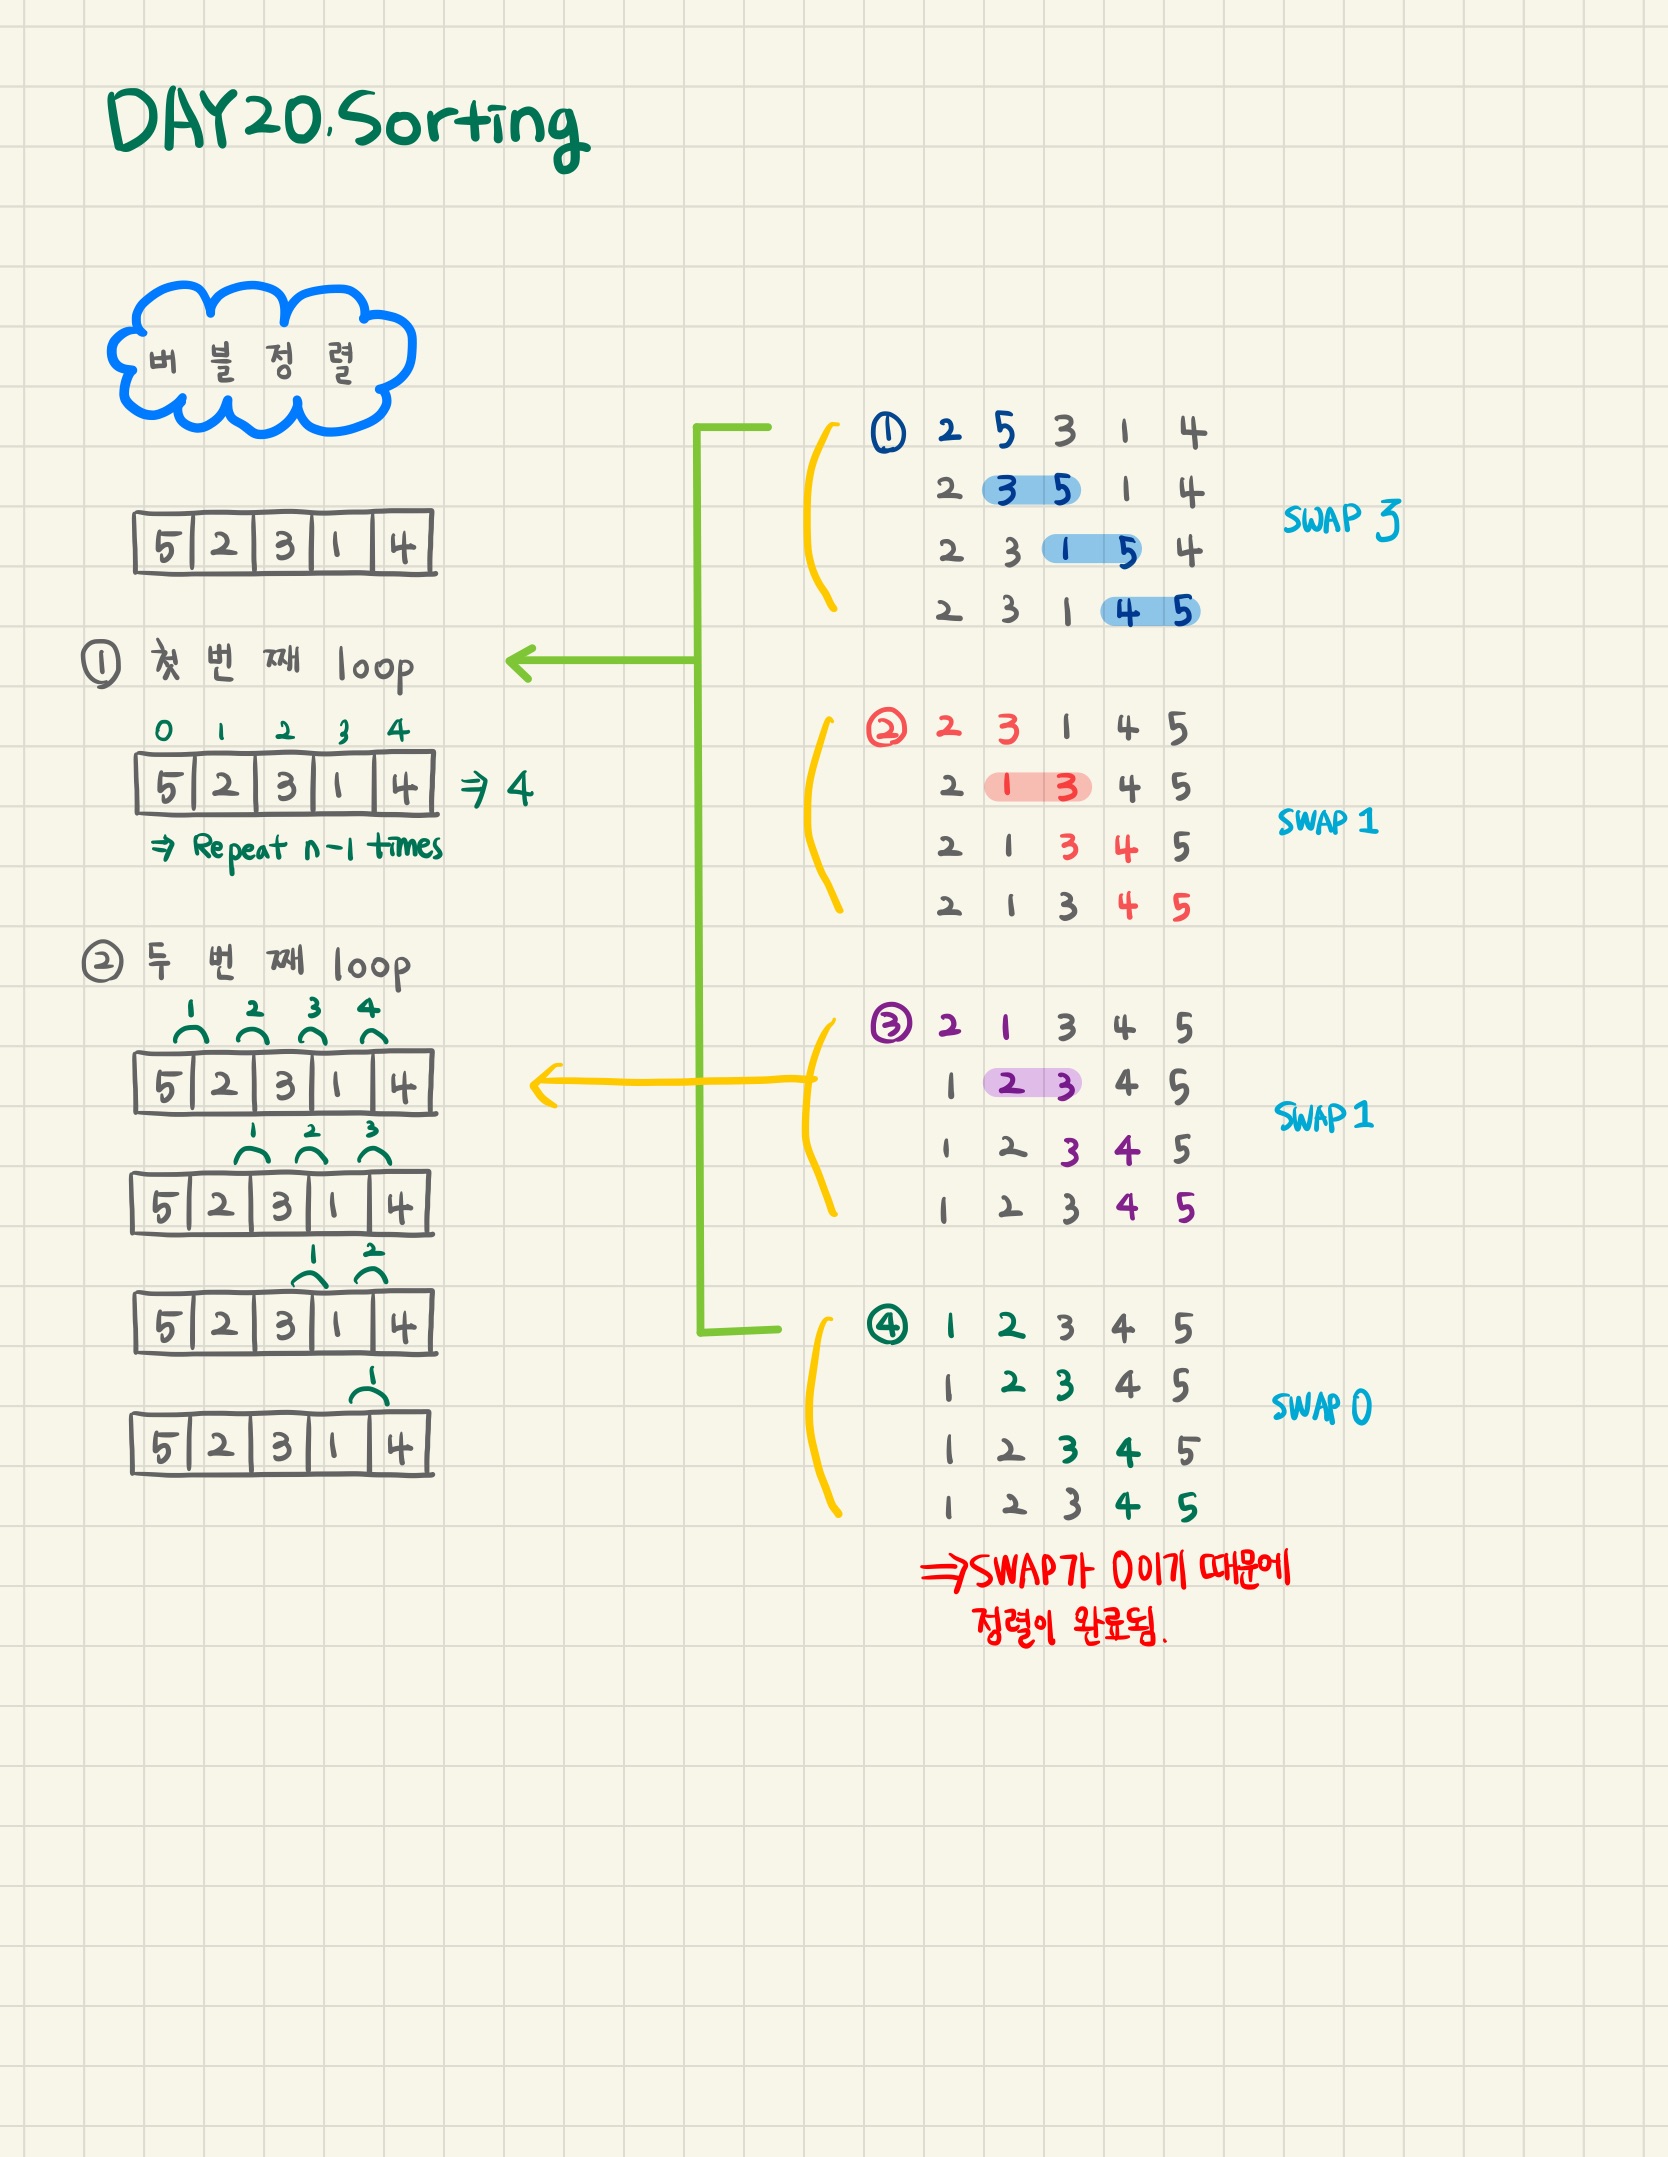 DAY20. Sorting
버블정렬
5 2 3 1 4
① 첫 번 째 loop
0 1 2 3 4
5 2 3 1 4 ⇒ 4
⇒ Repeat n-1 times
② 두 번 째 loop
1 2 3 4
5 2 3 1 4
1 2 3
5 2 3 1 4
1 2
5 2 3 1 4
1
5 2 3 1 4
① 2 5 3 1 4
2 3 5 1 4
SWAP 3
2 3 1 5 4
2 3 1 4 5
② 2 3 1 4 5
2 1 3 4 5
SWAP 1
2 1 3 4 5
2 1 3 4 5
③ 2 1 3 4 5
1 2 3 4 5
SWAP 1
1 2 3 4 5
1 2 3 4 5
④ 1 2 3 4 5
1 2 3 4 5
SWAP 0
1 2 3 4 5
1 2 3 4 5
⇒ SWAP가 0이기 때문에
정렬이 완료됨.